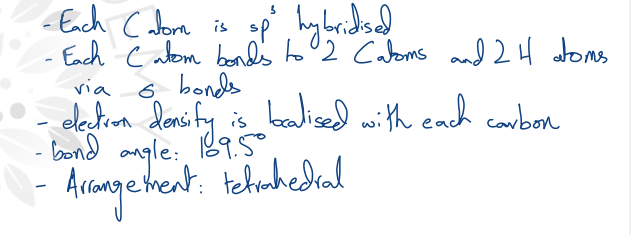 - Each C atom is sp³ hybridised
- Each C atom bonds to 2 C atoms and 2 H atoms
via σ bonds
- electron density is localised with each carbon
- bond angle: 109.5°
- Arrangement: tetrahedral